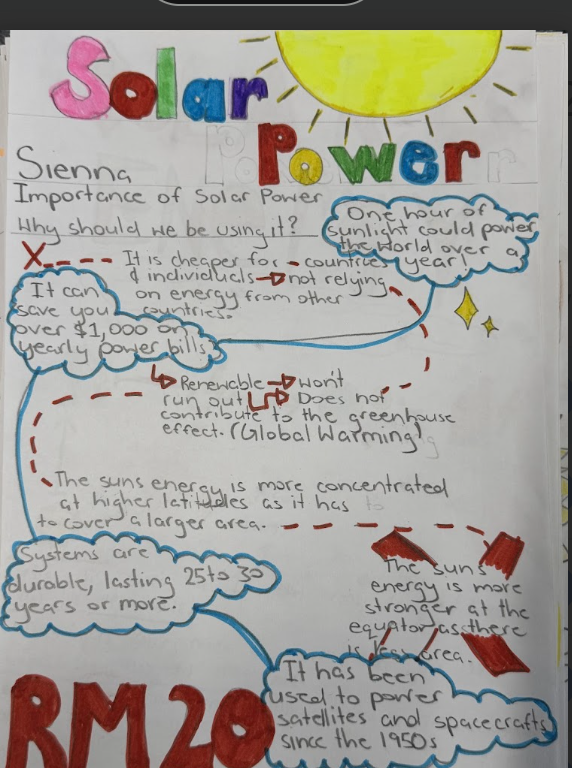 Solar
Power
Sienna
Importance of Solar Power
Why should we be using it?
One hour of
sunlight could power
the world over a
year!
It is cheaper for - countries
& individuals → not relying
on energy from other
countries.
It can
save you
over $1,000 on
yearly power bills
Renewable → won't
run out → Does not
contribute to the greenhouse
effect. (Global Warming)
The suns energy is more concentrated
at higher latitudes as it has to
to cover a larger area.
Systems are
durable, lasting 25 to 30
years or more.
The sun's
energy is more
stronger at the
equator as there
is less area.
It has been
used to power
satellites and spacecrafts
since the 1950s
RM20